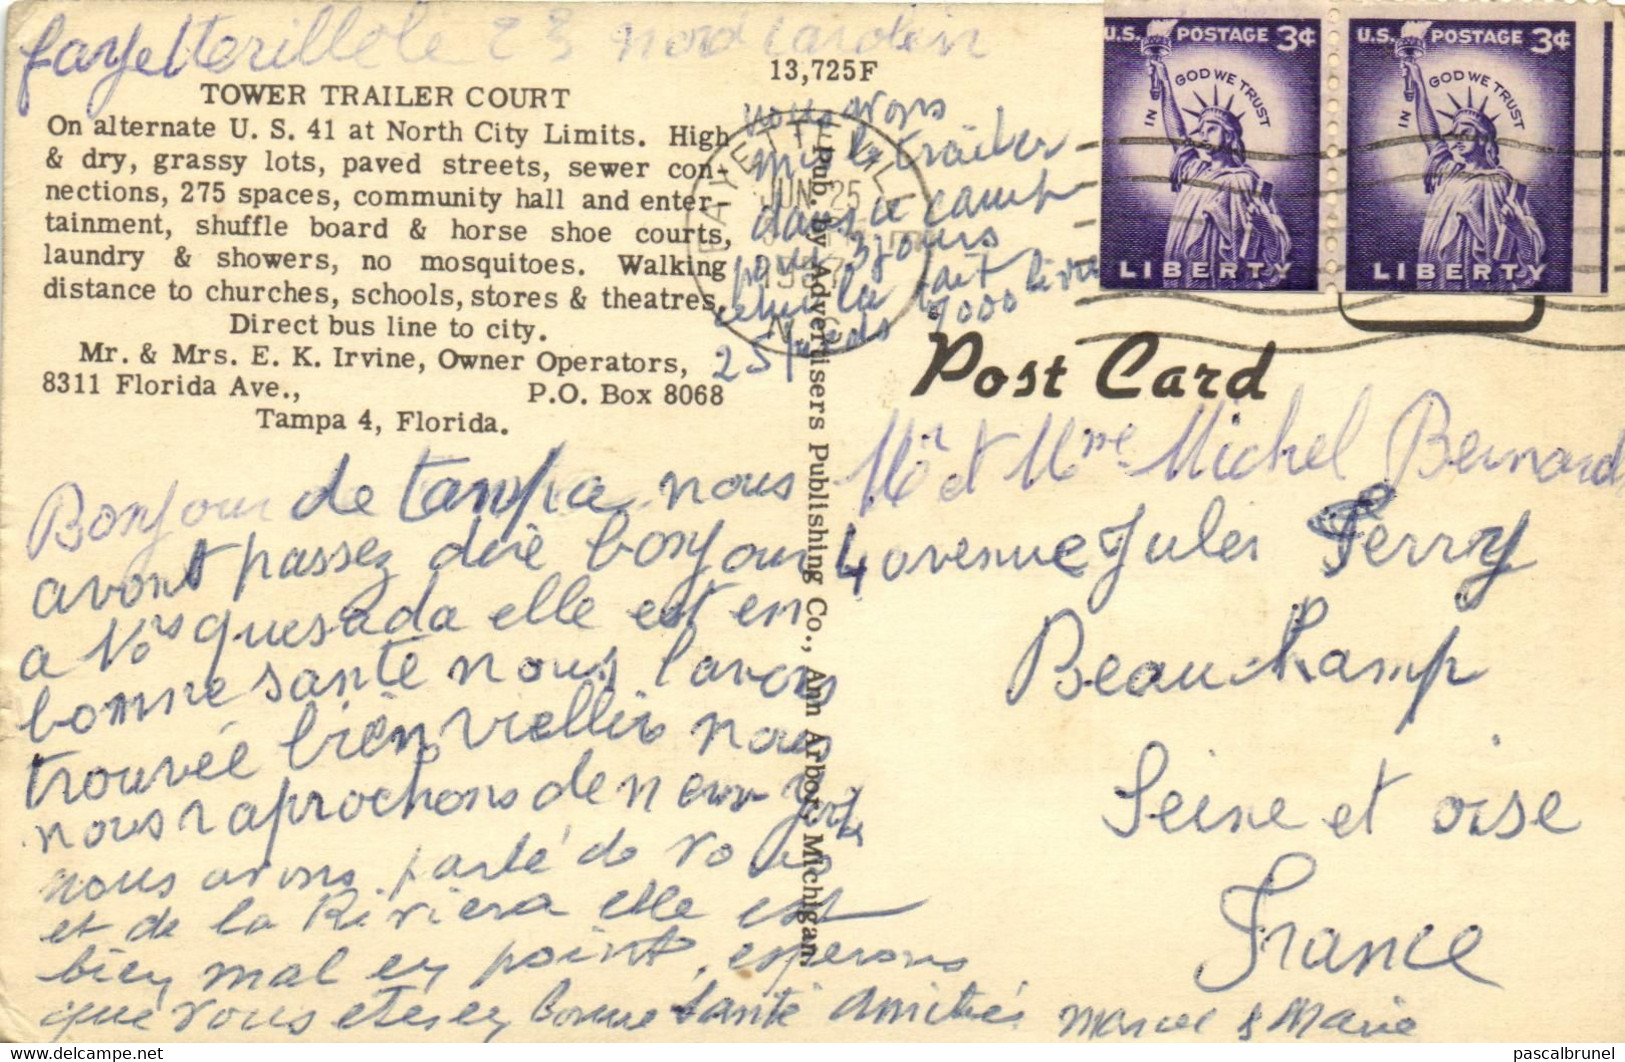 fayetterillele 23 nord carolin
13,725F
TOWER TRAILER COURT
On alternate U. S. 41 at North City Limits. High
& dry, grassy lots, paved streets, sewer con-
nections, 275 spaces, community hall and enter-
tainment, shuffle board & horse shoe courts,
laundry & showers, no mosquitoes. Walking
distance to churches, schools, stores & theatres.
Direct bus line to city.
Mr. & Mrs. E. K. Irvine, Owner Operators,
8311 Florida Ave., P.O. Box 8068
Tampa 4, Florida.
nous avons
mis le trailer
dans ce camp
pour 3 jours
celui la fait
25 pieds 7000 livres
FAYETTEVILLE
JUN 25
1957
N.C.
Pub. by Advertisers Publishing Co., Ann Arbor, Michigan
U.S. POSTAGE 3¢
IN GOD WE TRUST
LIBERTY
U.S. POSTAGE 3¢
IN GOD WE TRUST
LIBERTY
Post Card
Bonjour de tampa nous
avont passez dire bonjour
a Mrs quesada elle est en
bonne santé nous l'avons
trouvée bien viellis nous
nous raprochons de new york
nous avons parlé de vous
et de la Riviera elle est
bien mal en point, esperons
que vous etes en bonne santé Amitiés Marcel & Marie
Mr et Mme Michel Bernard
4 avenue Jules Ferry
Beauchamp
Seine et oise
France
pascalbrunel